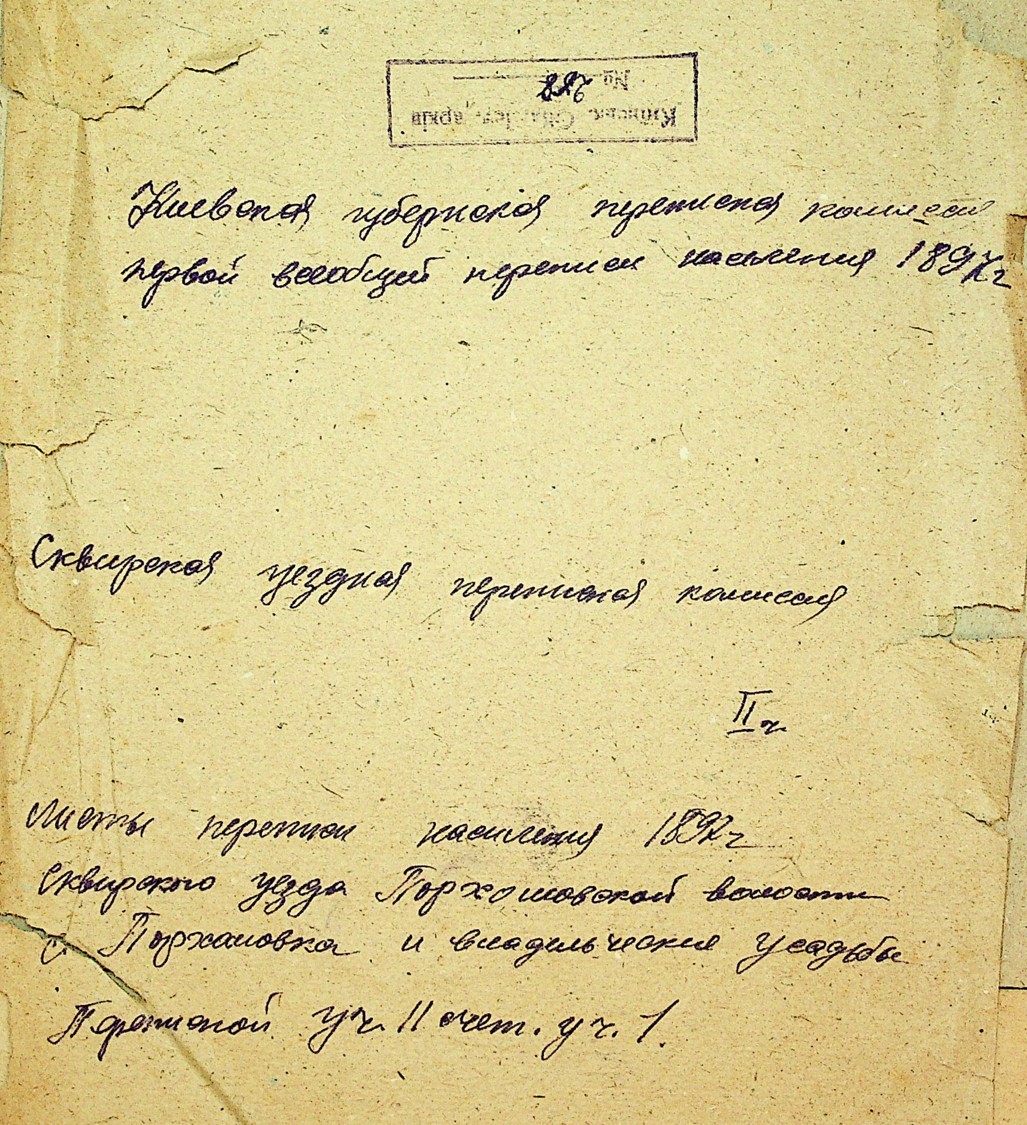 № 228
Київськ. Обл. Іст. архів
Киевская губернская переписная комиссия
первой всеобщей переписи населения 1897 г
Сквирская уездная переписная комиссия
II ч.
Листы переписи населения 1897 г
Сквирского уезда Пархомовской волости
с. Пархомовка и владельческие усадьбы
Переписной уч. II счет. уч. 1.